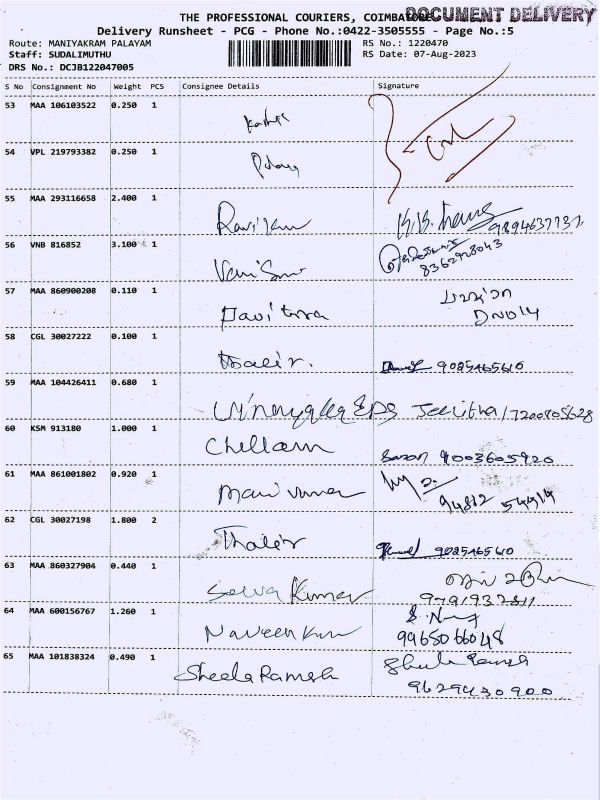 THE PROFESSIONAL COURIERS, COIMBATORE DOCUMENT DELIVERY
Delivery Runsheet - PCG - Phone No.:0422-3505555 - Page No.:5
Route: MANIYAKRAM PALAYAM RS No.: 1220470
Staff: SUDALIMUTHU RS Date: 07-Aug-2023
DRS No.: DCJB122047005
S No Consignment No Weight PCS Consignee Details Signature
53 MAA 106103522 0.250 1
54 VPL 219793382 0.250 1
55 MAA 293116658 2.400 1 9894637737
56 VNB 816852 3.100 1 8362928043
57 MAA 860900208 0.110 1 Pavithra
58 CGL 30027222 0.100 1 Thalir. 9025465610
59 MAA 104426411 0.680 1 Vinayaka EPS Jeevitha/7200805628
60 KSM 913180 1.000 1 Chellam 9003605920
61 MAA 861001802 0.920 1 94812 54414
62 CGL 30027198 1.800 2 Thalir 9025465610
63 MAA 860327904 0.440 1 Selva Kumar 9791937811
64 MAA 600156767 1.260 1 Naveen Kum 9965066048
65 MAA 101838324 0.490 1 Sheela Ramesh
9629430900